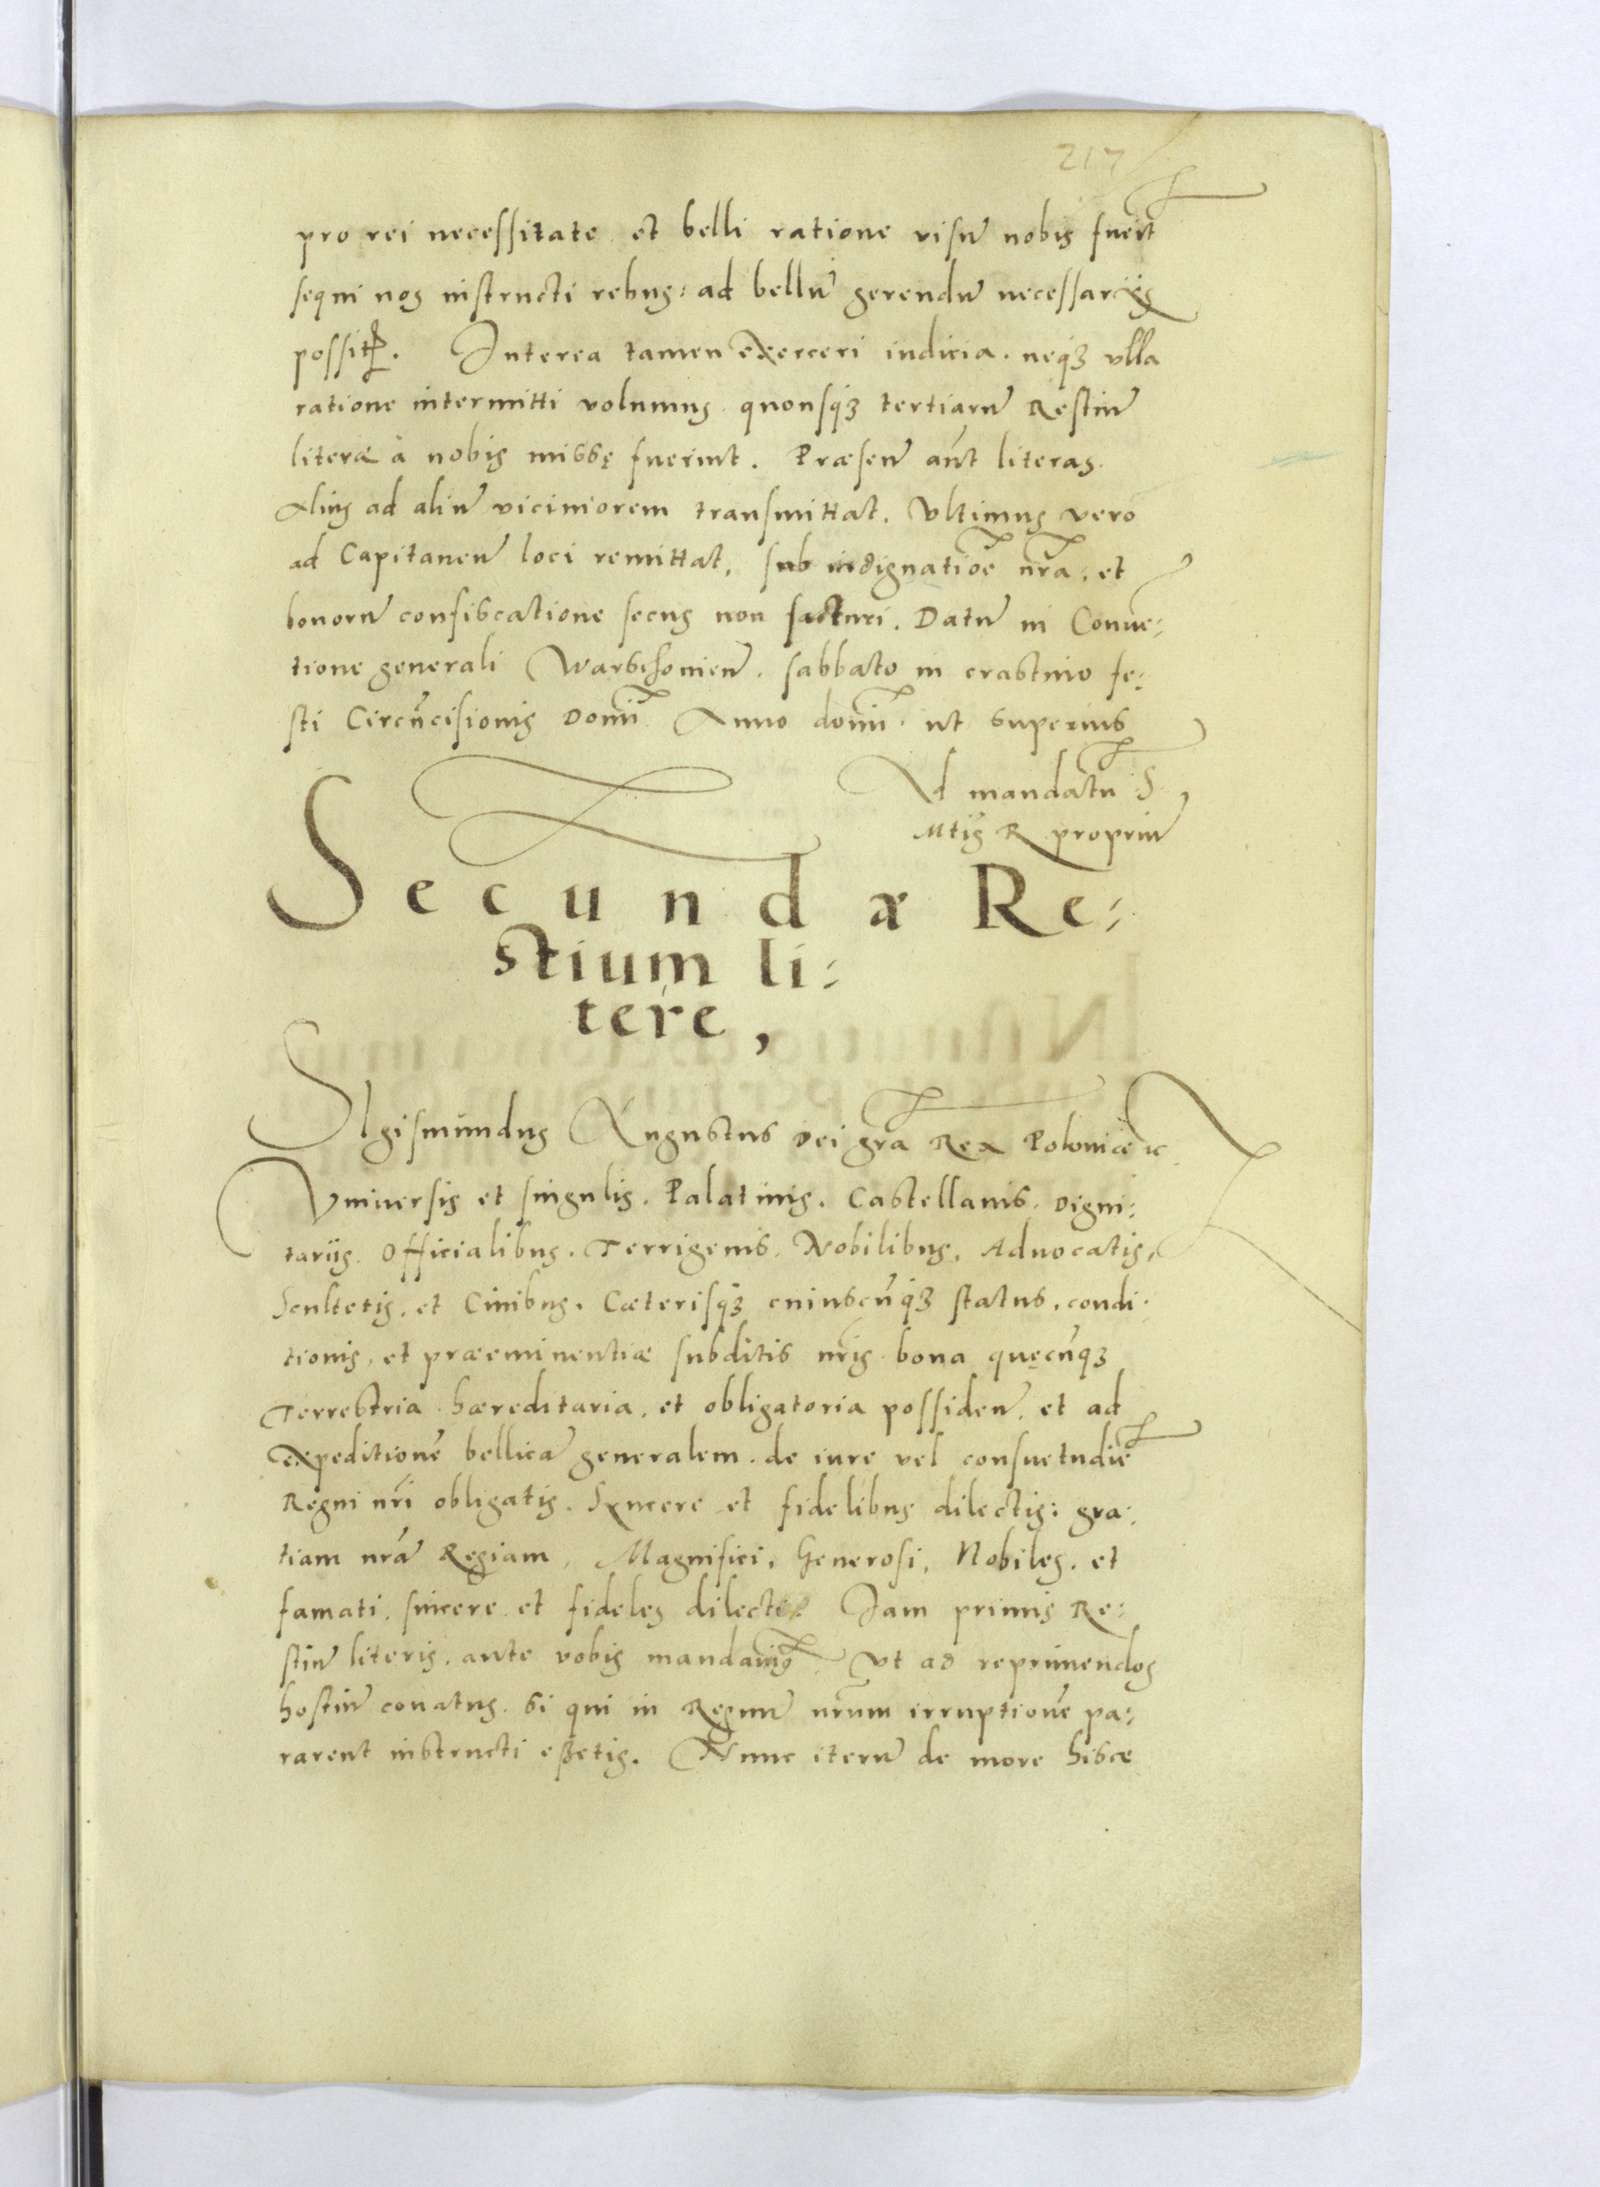 217
pro rei necessitate et belli ratione visũ nobis fuerit
sequi nos instructi rebus, ad bellũ gerendũ necessarijs
possitis. Interea tamen exerceri iudicia. neqȝ vlla
ratione intermitti volumus quousqȝ tertiarũ Restiũ
literæ à nobis missę fuerint. Præsen̄ aũt literas
Alius ad aliũ viciniorem transmittat. Vltimus vero
ad Capitaneũ loci remittat, sub indignatiõe nrã, et
bonorũ confiscatione secus non facturi. Datũ in Conue:
tione generali Warschouien̄. sabbato in crastino fe:
sti Circũcisionis Domĩ Anno domĩ ut superius
Ad mandatũ S
Mtis R propriũ
Secundæ Re:
stium li:
teræ,
SIgismundus Augustus Dei grã Rex Poloniæ ꝛc
Vniuersis et singulis. Palatinis. Castellanis. Digni:
tarijs. Officialibus. Terrigenis. Nobilibus. Aduocatis,
Scultetis. et Ciuibus. Cæterisqȝ cuiuscũqȝ status, condi:
tionis, et præeminentiæ subditis nrĩs bona quęcũqȝ
Terrestria hæreditaria, et obligatoria possiden̄. et ad
expeditionẽ bellicã generalem. de iure vel consuetudiẽ
Regni nrĩ obligatis. Syncere et fidelibus dilectis: gra:
tiam nrã Regiam, Magnifici, Generosi, Nobiles. et
famati. sincere et fideles dilecti. Iam primis Re:
stiũ literis. ante vobis mandauimus. Vt ad reprimendos
hostiũ conatus. si qui in Regnũ nrũm irruptionẽ pa:
rarent instructi eßetis. Nunc iterũ de more hisce